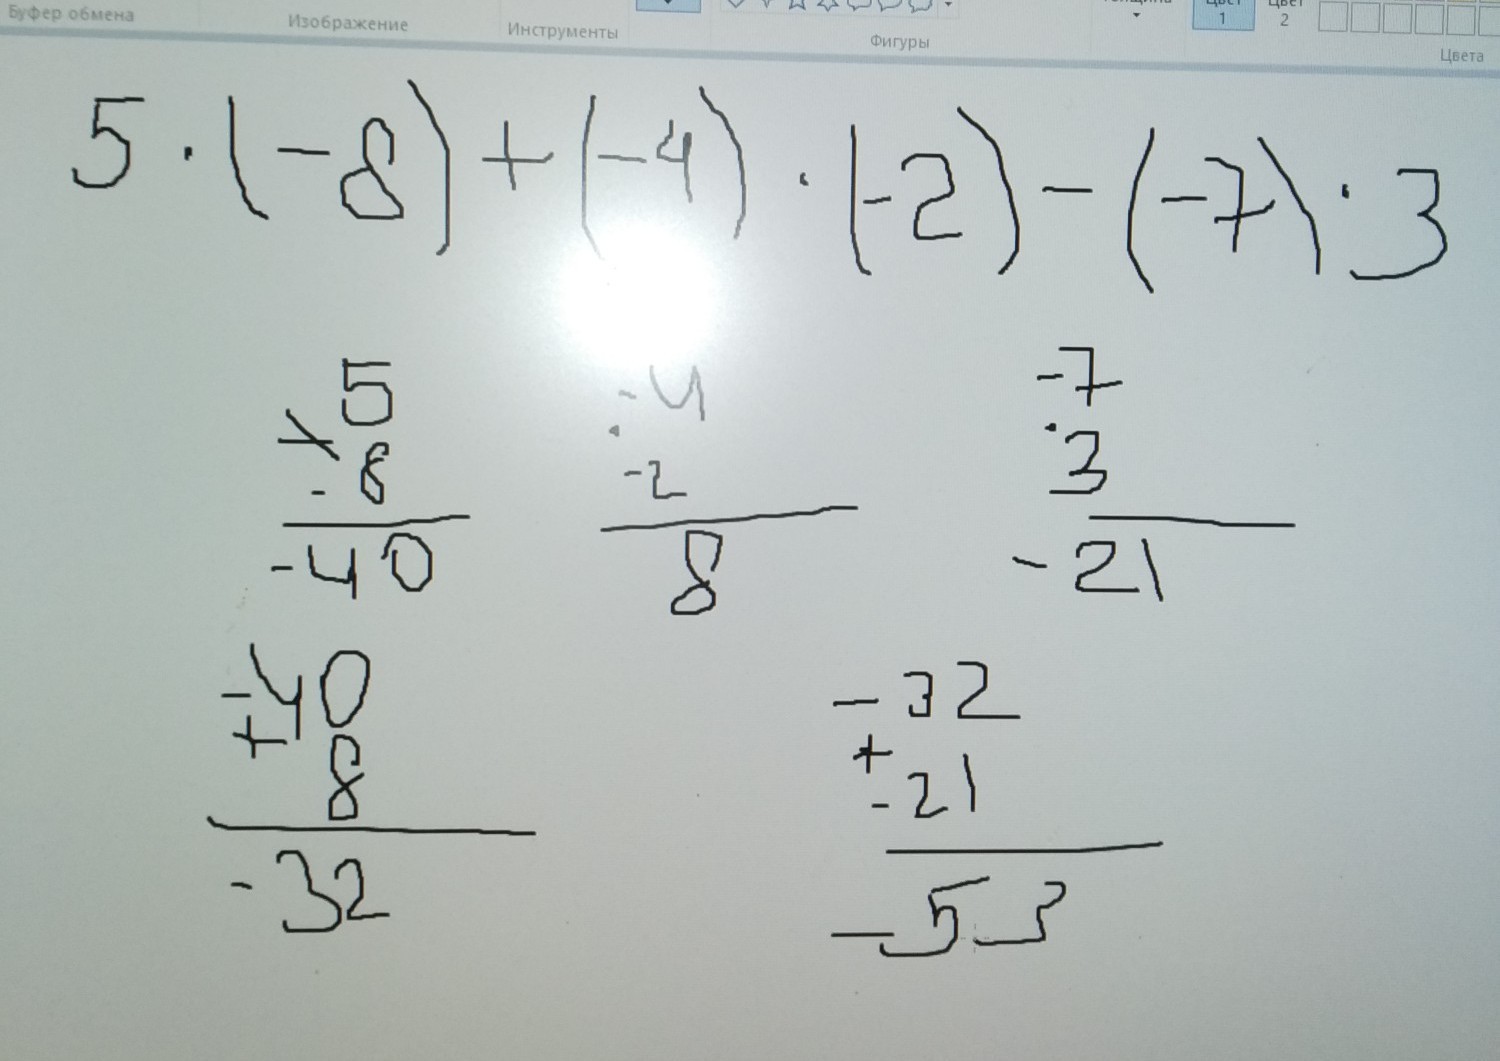 Буфер обмена Изображение Инструменты Фигуры Цвет 1 Цвет 2 Цвета
5 · (-8) + (-4) · (-2) - (-7) · 3
5 -4 -7
× · ·
-8 -2 3
-40 8 -21
-40 -32
+ +
8 -21
-32 -53